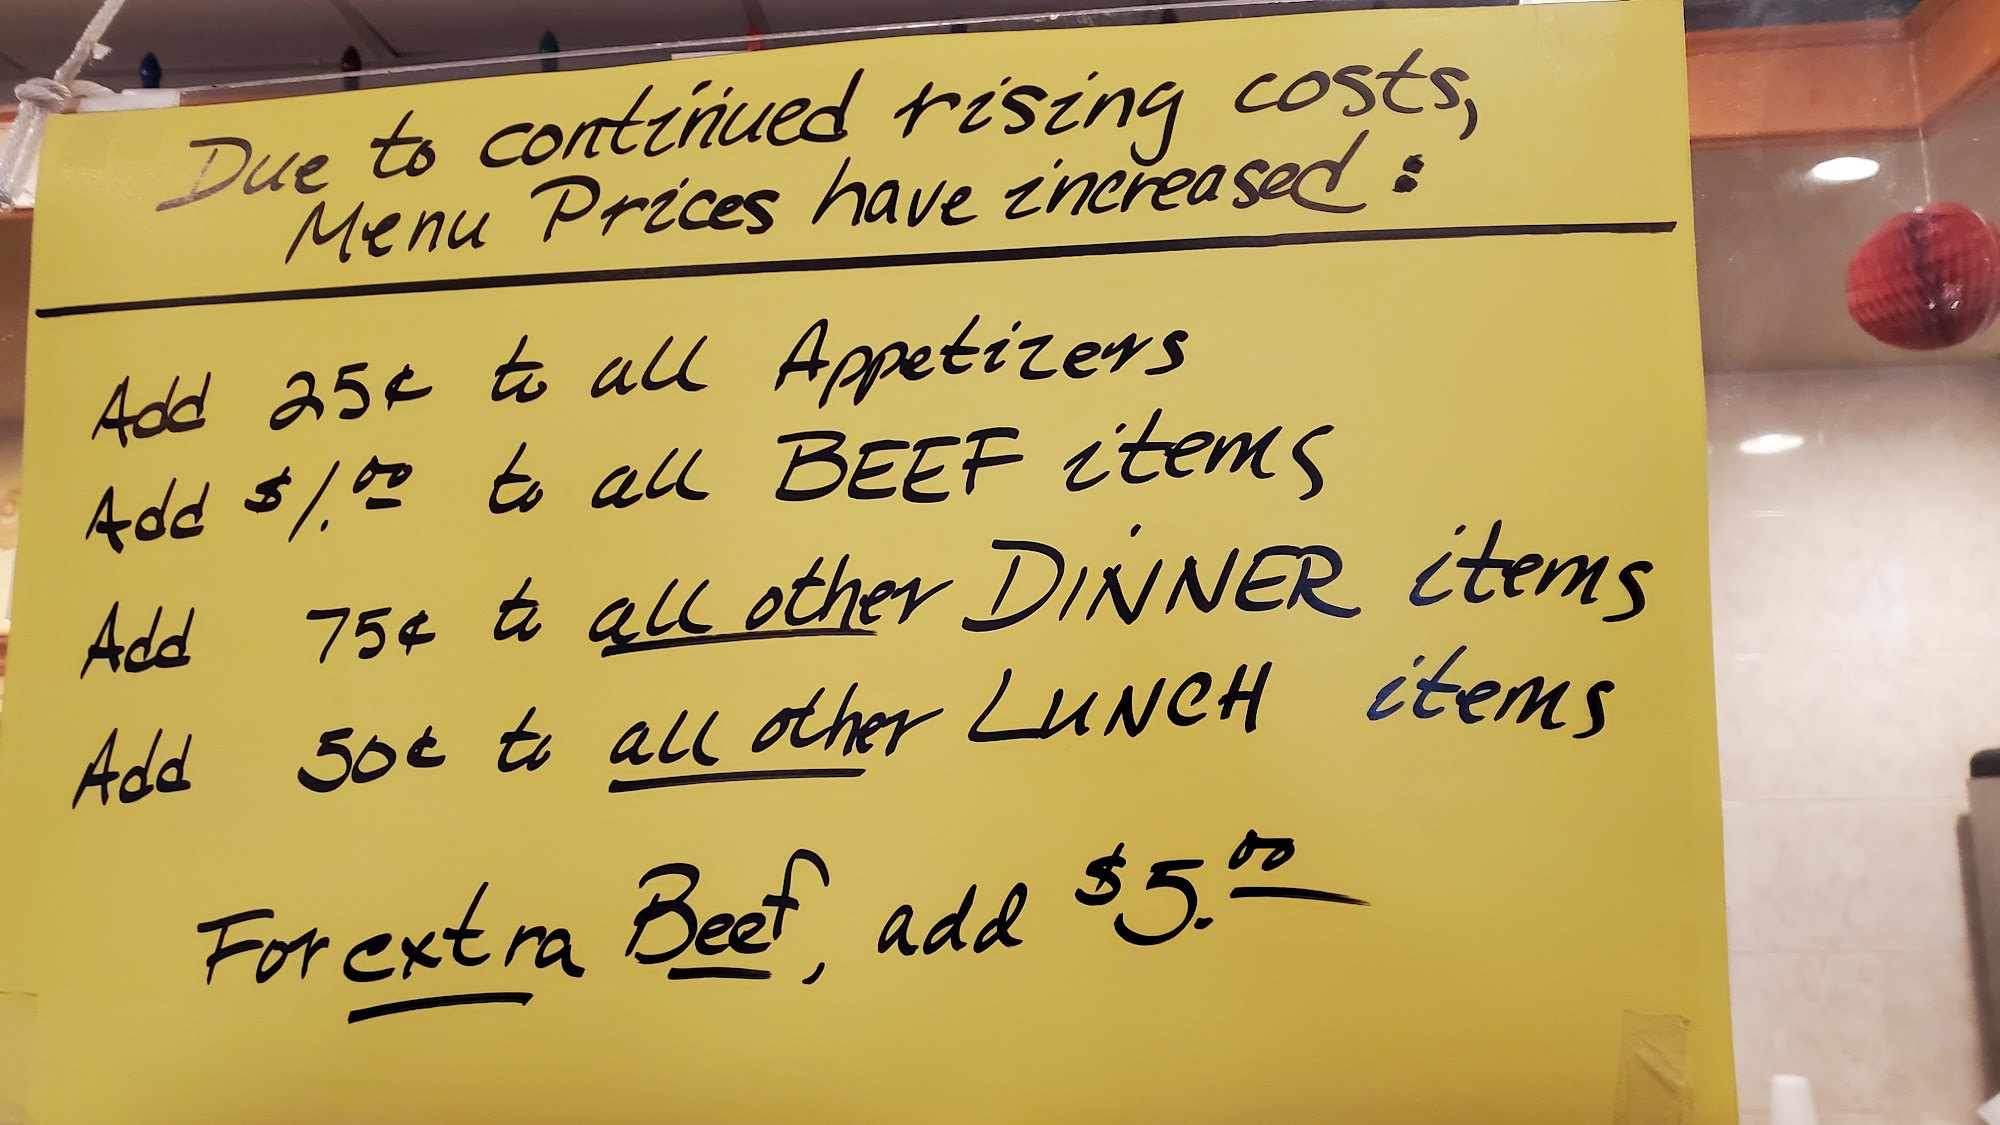 Due to continued rising costs,
Menu Prices have increased:
Add 25¢ to all Appetizers
Add $1.00 to all BEEF items
Add 75¢ to all other DINNER items
Add 50¢ to all other LUNCH items
For extra Beef, add $5.00